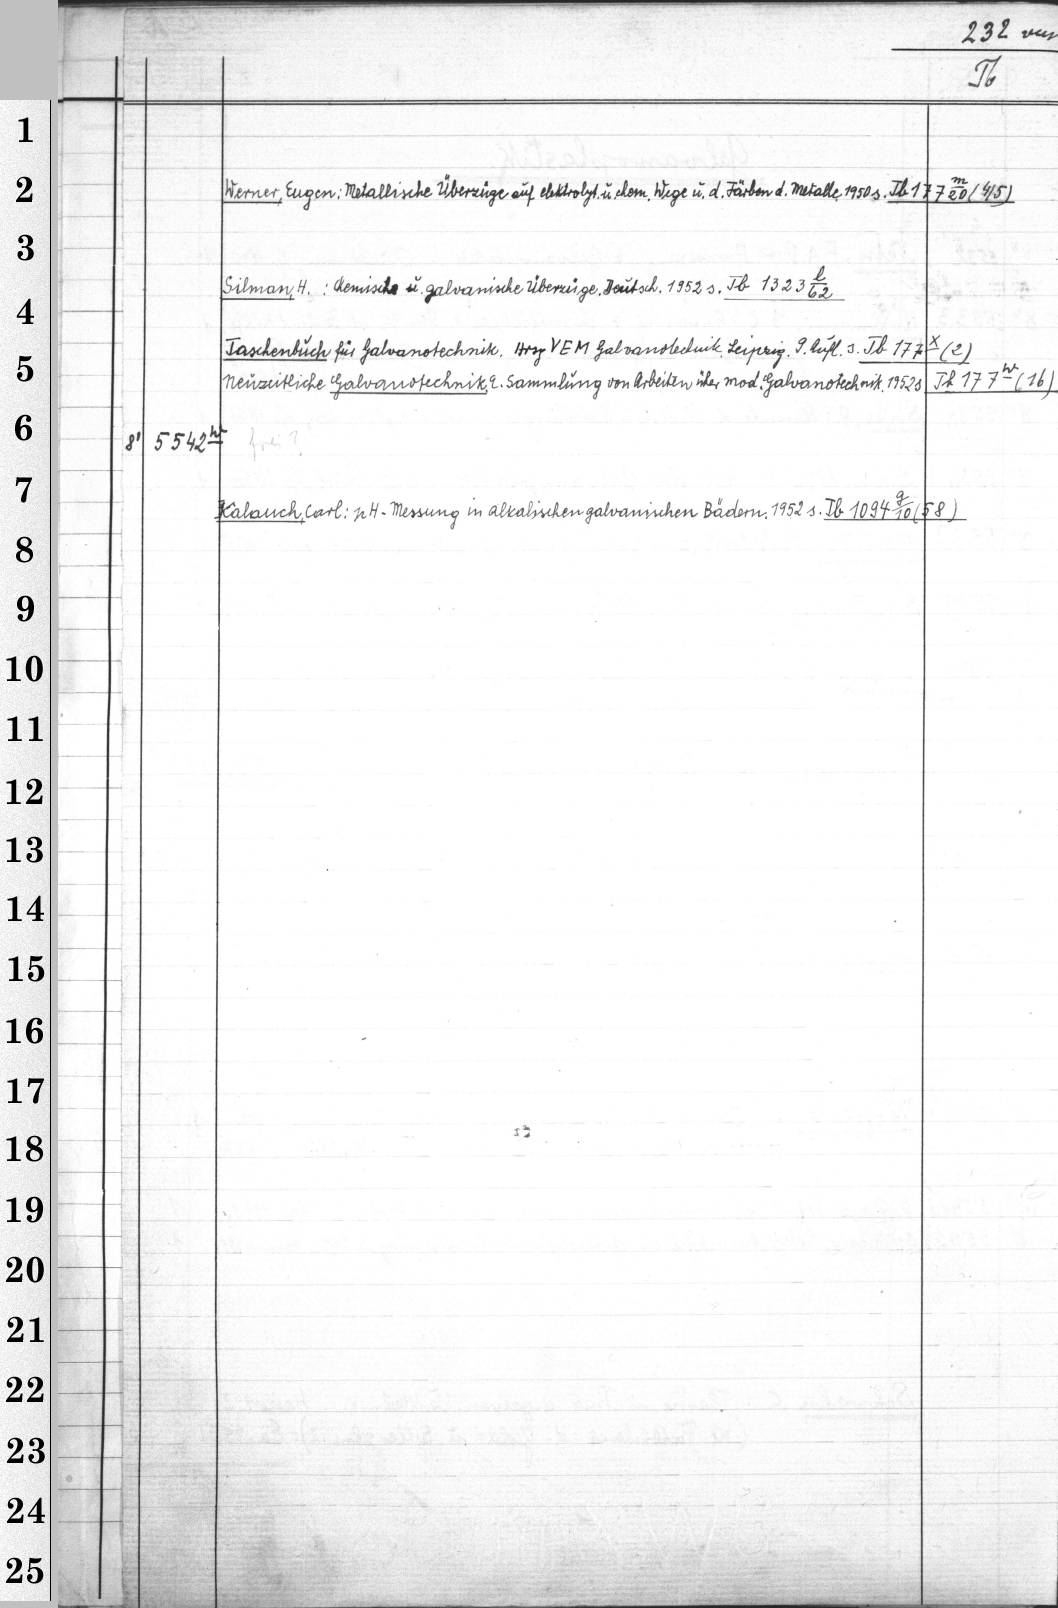 232
Tb
1
2
Werner, Eugen: Metallische Überzüge auf elektrolyt. u. chem. Wege u. d. Färben d. Metalle 1950 s. Tb 177 m/20 (4/5)
3
Silman, H. : Chemische u. galvanische Überzüge. Deutsch. 1952 s. Tb 1323 l/62
4
Taschenbuch für Galvanotechnik. Hrsg VEM Galvanotechnik, Leipzig. 9. Aufl. s. Tb 177 x (2)
5
Neuzeitliche Galvanotechnik, e. Sammlung von Arbeiten über mod. Galvanotechnik. 1952 s Tb 177 w (16)
6
8° 5542 w frei?
7
Kalauch, Carl: pH-Messung in alkalischen galvanischen Bädern. 1952 s. Tb 1094 g/10 (58)
8
9
10
11
12
13
14
15
16
17
18
19
20
21
22
23
24
25